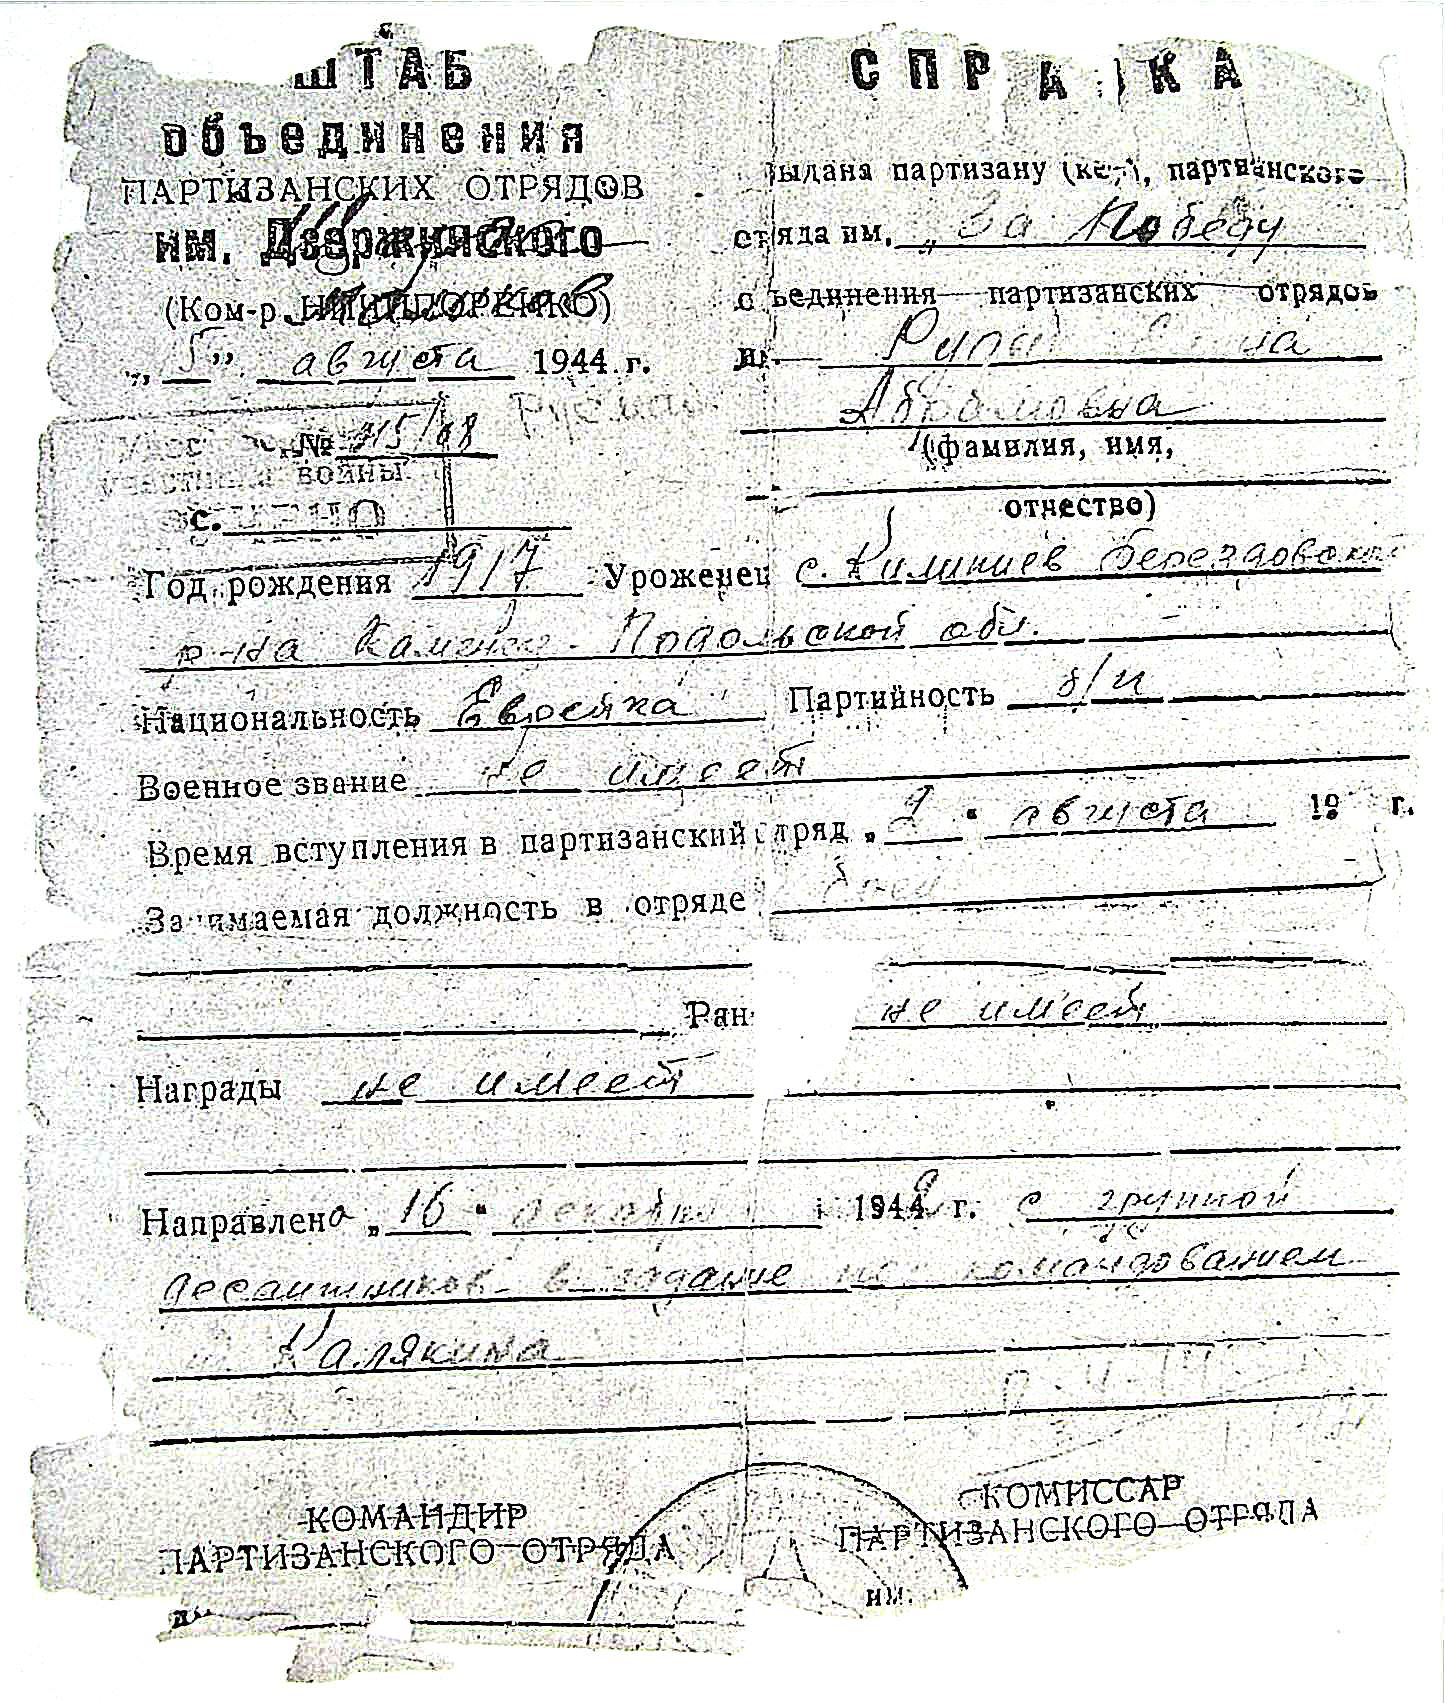 ШТАБ
объединения
ПАРТИЗАНСКИХ ОТРЯДОВ
им. Дзержинского
(Ком-р
„5” августа 1944 г.
№ 115/48
ВОЙНЫ
с.
СПРАВКА
Выдана партизану (ке), партизанского
отряда им. „За Победу
объединения партизанских отрядов
им.
Абрамовна
(фамилия, имя,
отчество)
Год рождения 1917 Уроженец с. Киликиев Берездовский
р-на Каменец-Подольской обл.
Национальность Еврейка Партийность б/п
Военное звание не имеет
Время вступления в партизанский отряд „2“ августа 19 г.
Занимаемая должность в отряде
Ран не имеет
Награды не имеет
Направлена „16“ 194 г. с группой
десантников в задание по командованием
Калякина
КОМАНДИР
ПАРТИЗАНСКОГО ОТРЯДА
КОМИССАР
ПАРТИЗАНСКОГО ОТРЯДА
им.